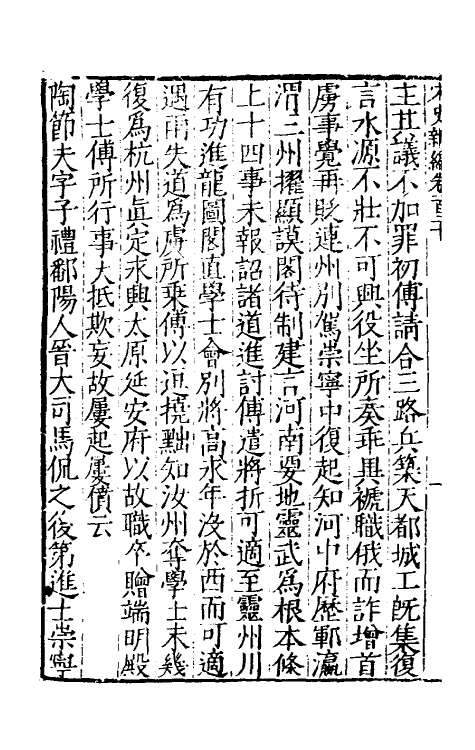 宋史新編卷一百十
主其議不加罪初傅請合三路兵築天都城工旣集復
言水源不壯不可興役坐所奏乖異褫職俄而詐增首
虜事覺再貶連州別駕崇寧中復起知河中府歷鄆瀛
渭三州擢顯謨閣待制建言河南要地靈武爲根本條
上十四事未報詔諸道進討傅遣將折可適至靈州川
有功進龍圖閣直學士會別將高永年沒於西而可適
遇雨失道爲虜所乘傅以逗撓黜知汝州奪學士未幾
復爲杭州眞定永興太原延安府以故職卒贈端明殿
學士傅所行事大抵欺妄故屢起屢僨云
陶節夫字子禮鄱陽人晉大司馬侃之後第進士崇寧